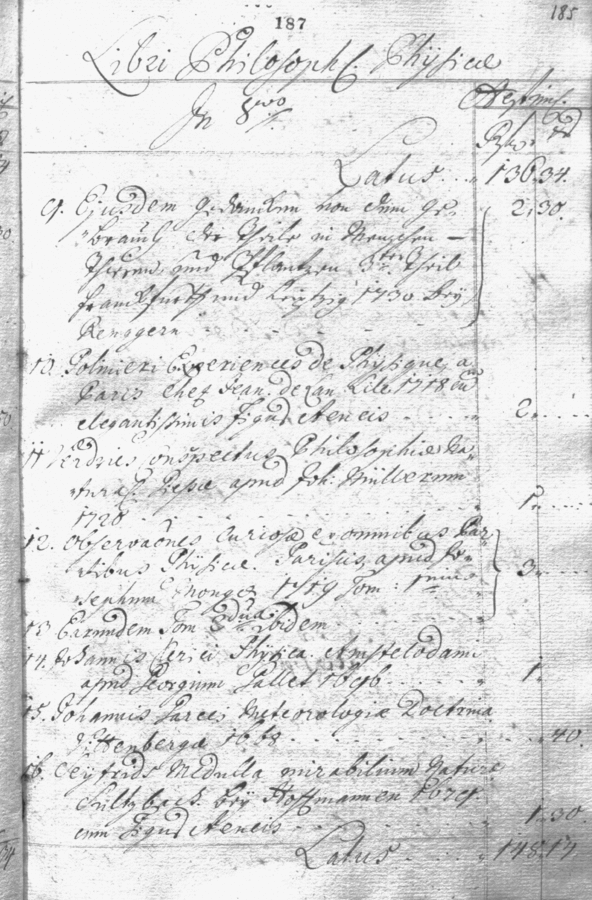 187
185
Libri Philosoph: Physicæ
In 8vo
Æstim.
Latus . . 136.34.
9. Ejusdem gedancken von dem Ge- 2.30.
brauch der Theile in Menschen
Thieren und Pflantzen Theil
Franckfurth und Leipzig 1730. bey
Renggern
10. Polinieri Experiences de Physique, a
Paris chez Jean de Lile 1718 cum
elegantissimis figuris Æneis . . . . 2.
11 Verdries Conspectus Philosophiæ Na-
turalis Giessæ apud Joh. Müllerum
1720 . . . . 1.
12. Observaônes Curiosæ ex omnibus Par-
tibus Physicæ. Parisiis apud Jo-
sephum Monge 1719 Tom: 1mus 3.
13 Earundem Tom 2dus ibidem
14. Johannis Clerici Physica Amstelodami
apud Georgium Gallet 1696 . . . . 1.
15. Johannis Meteorologiæ Doctrina
Wittenbergæ 1668 . . . . 40.
16. Seyfrids Medulla mirabilium Naturæ
Sultzbach. bey Hoffmannen 1679
cum Figuris Æneis . . . 1.30
Latus . . . . 148.14.